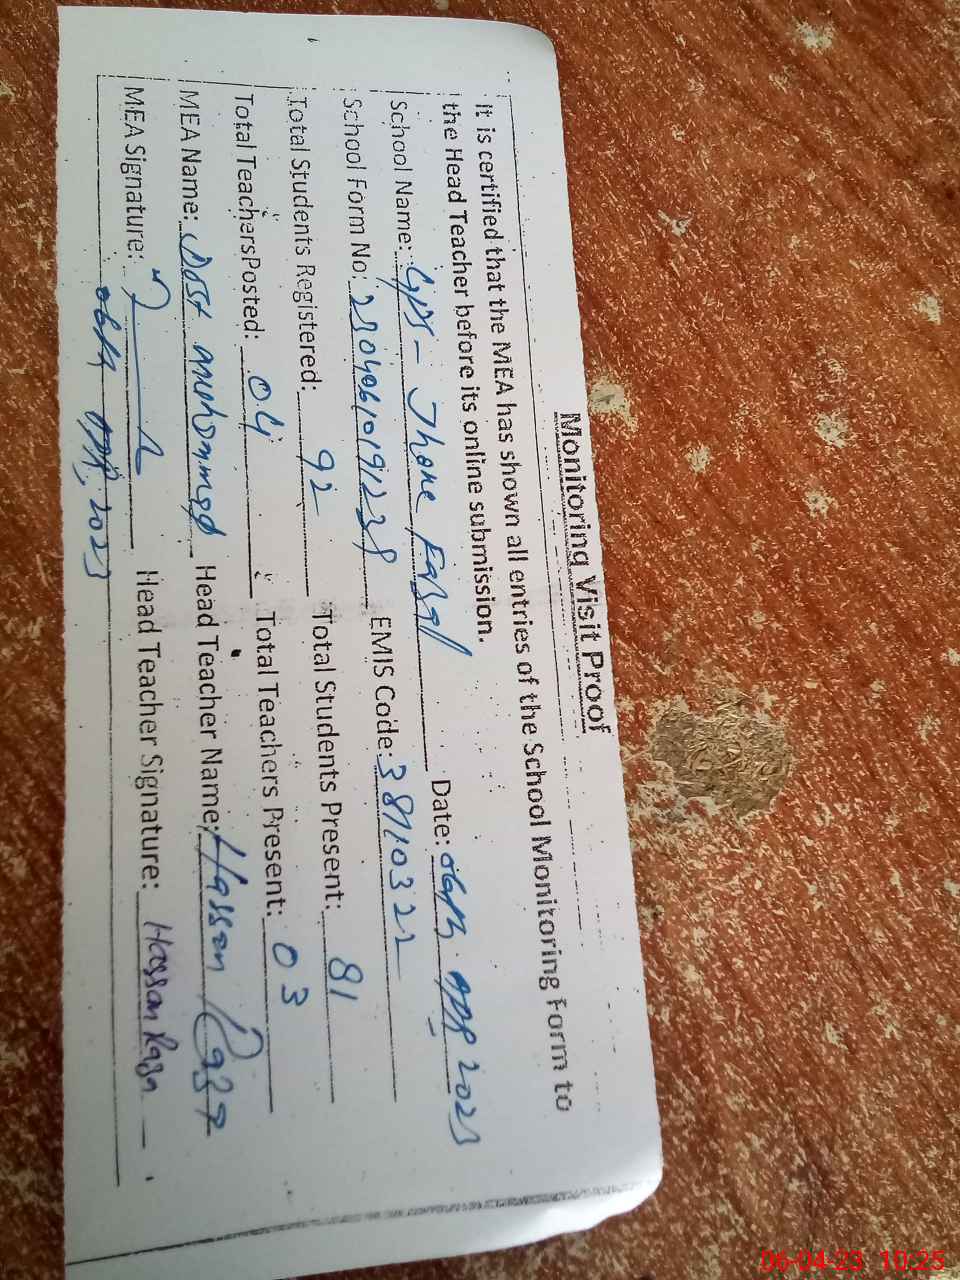 Monitoring Visit Proof
It is certified that the MEA has shown all entries of the School Monitoring Form to
the Head Teacher before its online submission.
School Name: GPS - Jhoke Fazal Date: 06th Apr 2023
School Form No: EMIS Code: 38710322
Total Students Registered: 92 Total Students Present: 81
Total Teachers Posted: 04 Total Teachers Present: 03
MEA Name: Dost Muhammad Head Teacher Name: Hassan Raza
MEA Signature: Head Teacher Signature: Hassan Raza
06th Apr, 2023
06-04-23 10:25